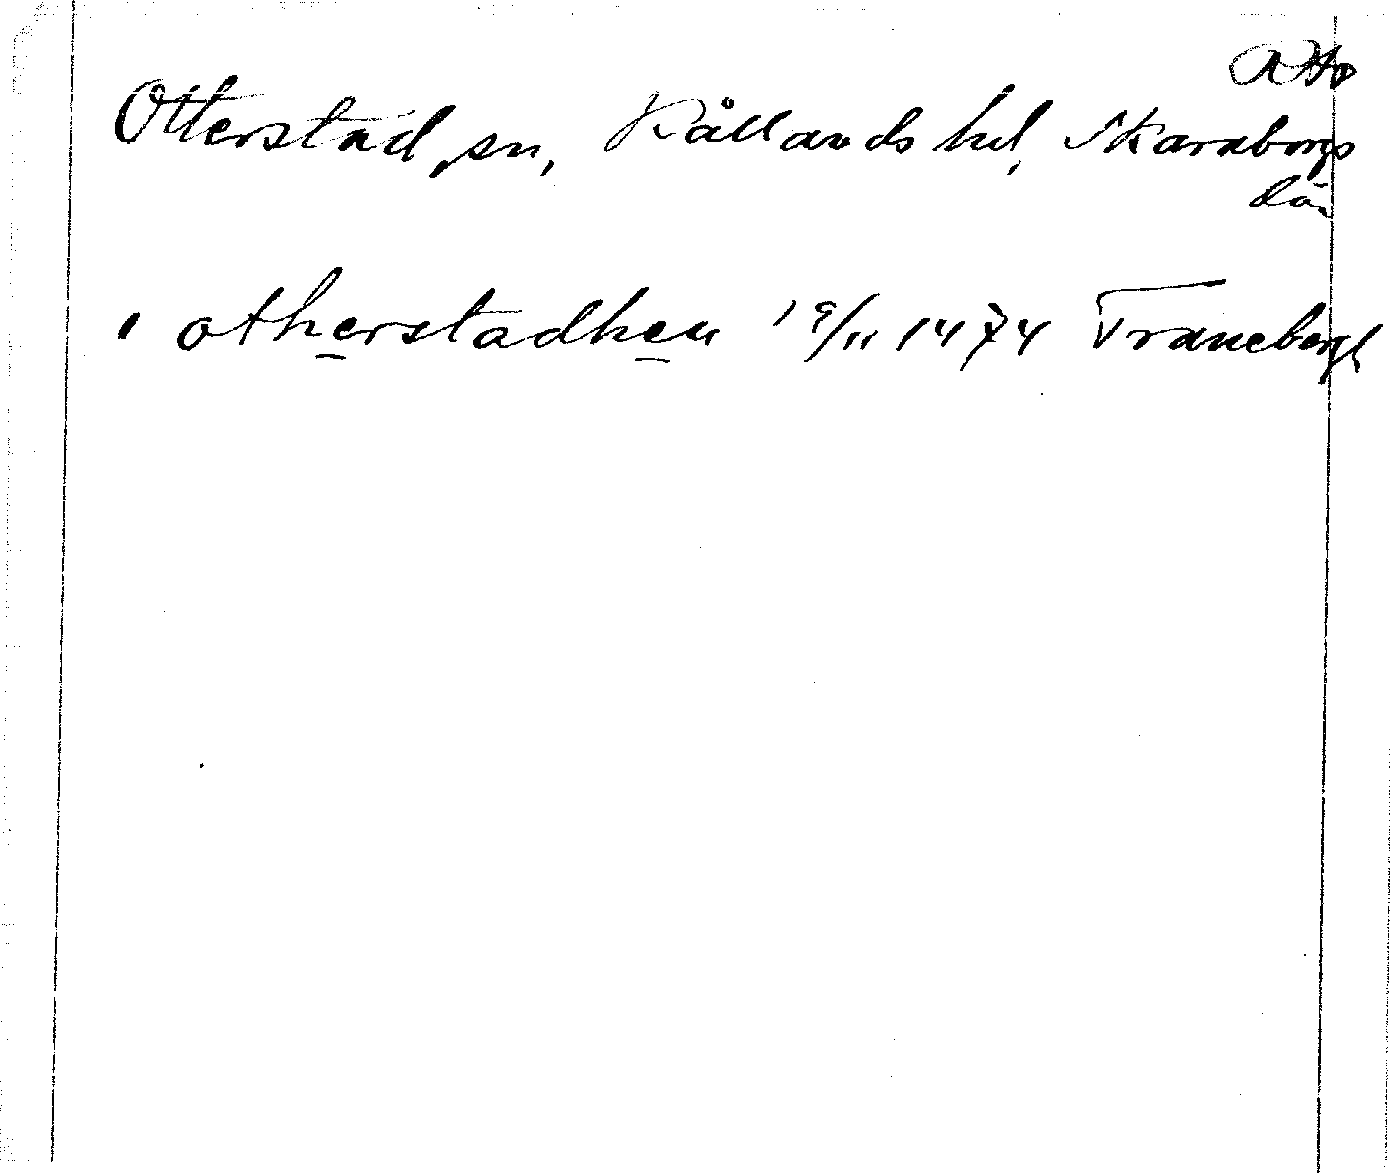 Otterstad, sn, Kållands hd, Skaraborgs
län
i otherstadhen 19/11 1474 Tranebergh